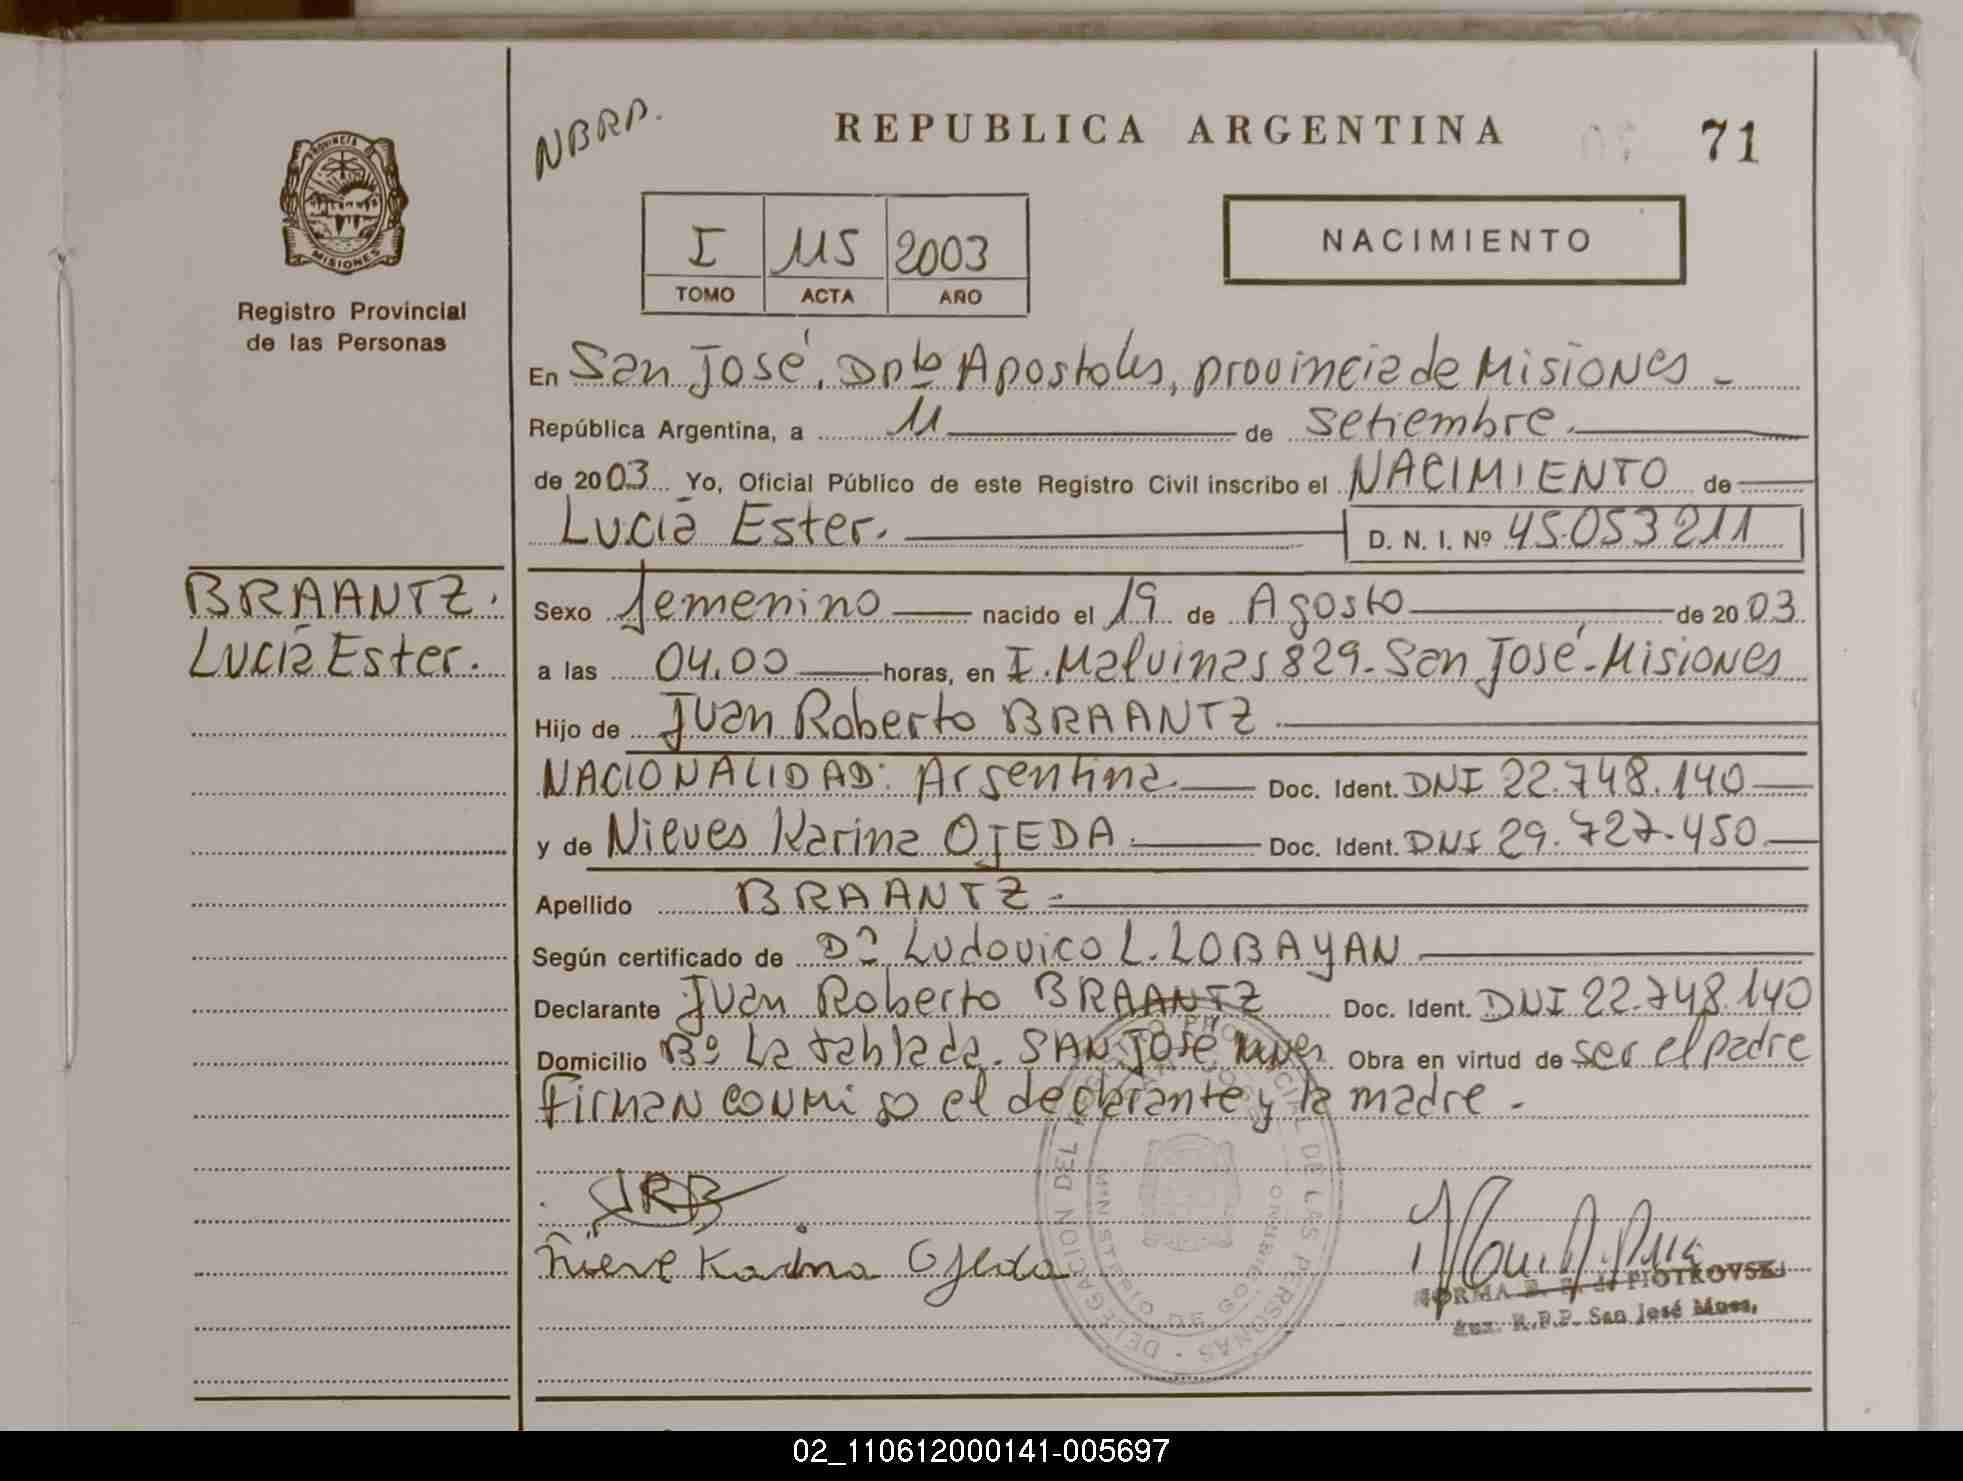 NBRP.
REPUBLICA ARGENTINA
71
PROVINCIA DE
MISIONES
Registro Provincial
de las Personas
I 115 2003
TOMO ACTA AÑO
NACIMIENTO
En San José, Dpto Apostoles, provincia de Misiones -
República Argentina, a 11 de setiembre.
de 2003 Yo, Oficial Público de este Registro Civil inscribo el NACIMIENTO de
Lucía Ester. D. N. I. Nº 45.053211
BRAANTZ.
Lucía Ester.
Sexo femenino nacido el 19 de Agosto de 2003
a las 04.00 horas, en I. Malvinas 829- San José- Misiones
Hijo de Juan Roberto BRAANTZ
NACIONALIDAD: Argentina Doc. Ident. DNI 22.748.140
y de Nieves Karina OJEDA. Doc. Ident. DNI 29.727.450
Apellido BRAANTZ
Según certificado de Dº Ludovico L. LOBAYAN
Declarante Juan Roberto BRAANTZ Doc. Ident. DNI 22.748.140
Domicilio Bº La tablada. SAN José Mnes Obra en virtud de ser el padre
Firman conmigo el declarante y la madre -
JRB
Nieve Karina Ojeda
DELEGACION DEL REGISTRO PROVINCIAL DE LAS PERSONAS
MINISTERIO DE GOBIERNO
NORMA de PIOTROVSKI
Aux. R.P.P. San José Mnes.
02_110612000141-005697